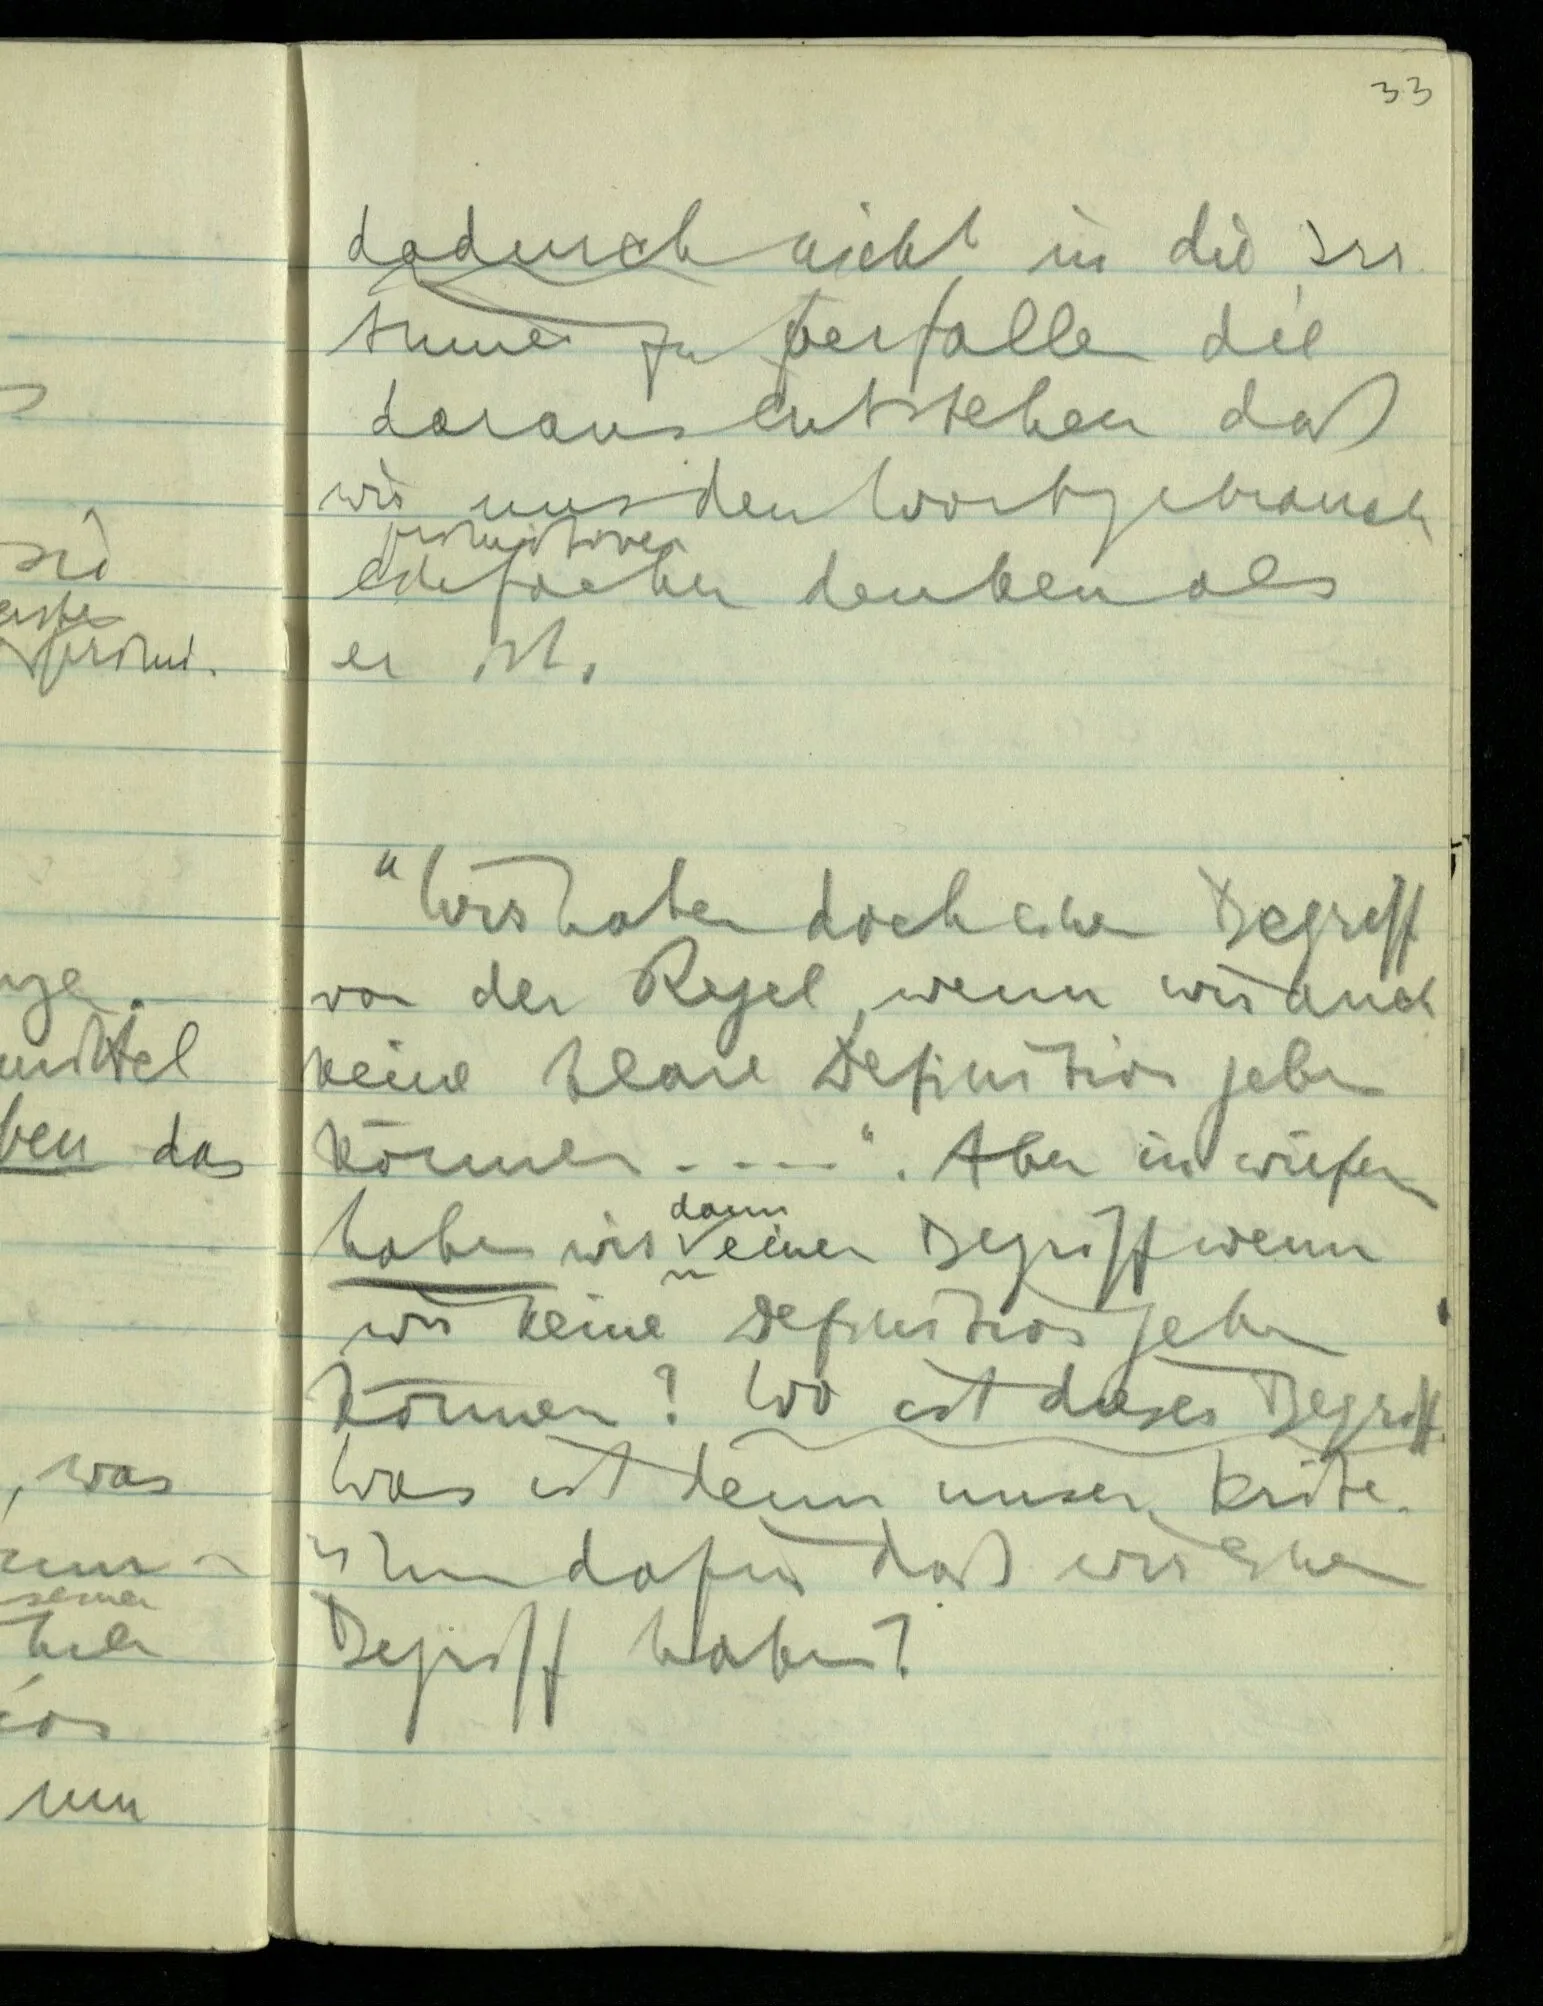 33
dadurch nicht in die Irr
tümer zu verfallen die
daraus entstehen daß
wir uns den Wortgebrauch
primitiver
einfacher denken als
er ist.
"Wir haben doch einen Begriff
von der Regel, wenn wir auch
keine klare Definition geben
können - - - -". Aber in wiefern
dann
haben wir einen Begriff wenn
wir keine Definition geben
können? Wo ist dieser Begriff
Was ist denn unser Krite-
rium dafür daß wir einen
Begriff haben?
erste
primi.
mittel
ben das
, was
seiner